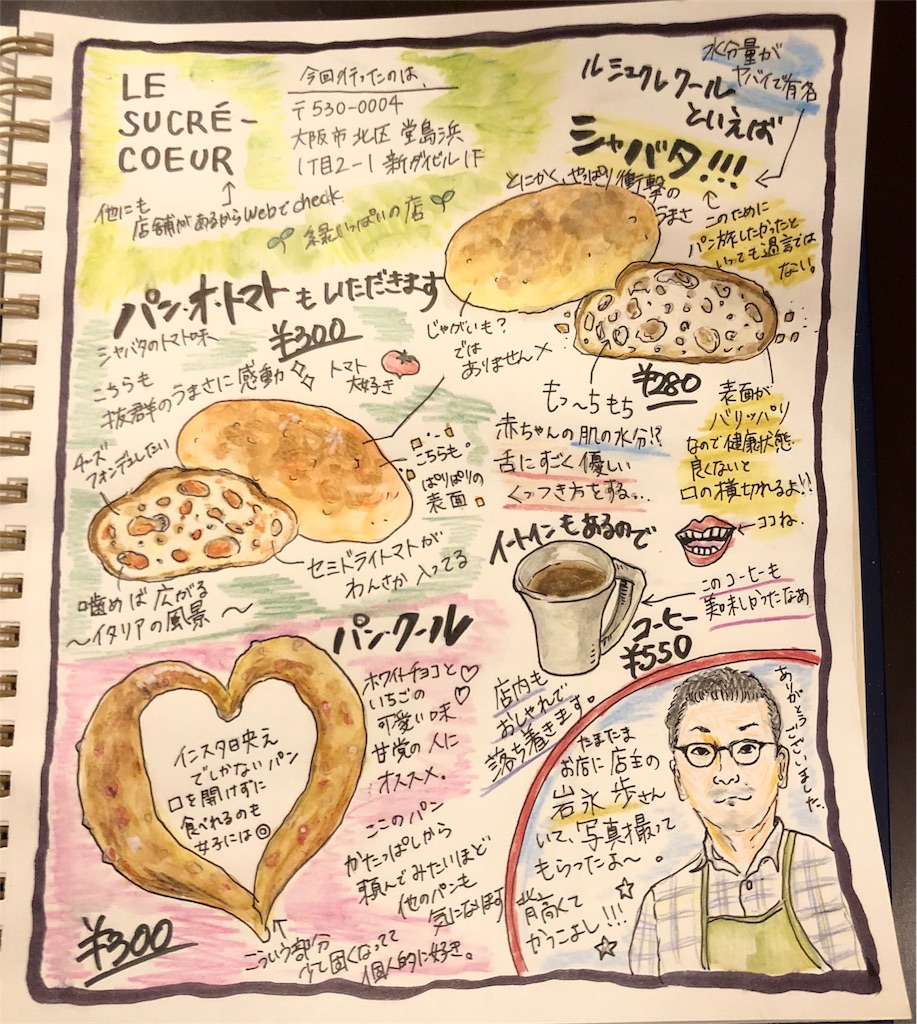 LE
SUCRÉ-
COEUR
他にも
店舗があるからWebでcheck
今回行ったのは、
〒530-0004
大阪市北区 堂島浜
1丁目2-1 新ダイビル1F
緑いっぱいの店
水分量が
ヤバイで有名
ルシュクレクール
といえば
シャバタ!!!
とにかく、やっぱり衝撃の
うまさ
このために
パン旅したかったと
いっても過言では
ない。
じゃがいも?
では
ありません×
¥280
もっ〜ちもち
赤ちゃんの肌の水分!?
舌にすごく優しい
くっつき方をする…
表面が
バリッバリ
なので健康状態
良くないと
口の横切れるよ!!
ココね.
パン・オ・トマトもいただきます
シャバタのトマト味
¥300
こちらも
抜群のうまさに感動
トマト
大好き
チーズ
フォンデュしたい
こちらも
ぱりぱりの
表面
セミドライトマトが
わんさか入ってる
噛めば広がる
〜イタリアの風景〜
イートインもあるので
コーヒー
¥550
このコーヒーも
美味しかったなあ
店内も
おしゃれで
落ち着きます。
パン・クール
ホワイトチョコと
いちごの
可愛い味
甘党の人に
オススメ.
インスタ映え
でしかないパン
口を開けずに
食べれるのも
女子には◎
¥300
こういう部分
少し固くなってて
個人的に好き。
ここのパン
かたっぱしから
頼んでみたいほど
他のパンも
気になりまくり
たまたま
お店に店主の
岩永 歩さん
いて、写真撮って
もらったよ〜。
背高くて
かっこよし!!!
ありがとうございました.